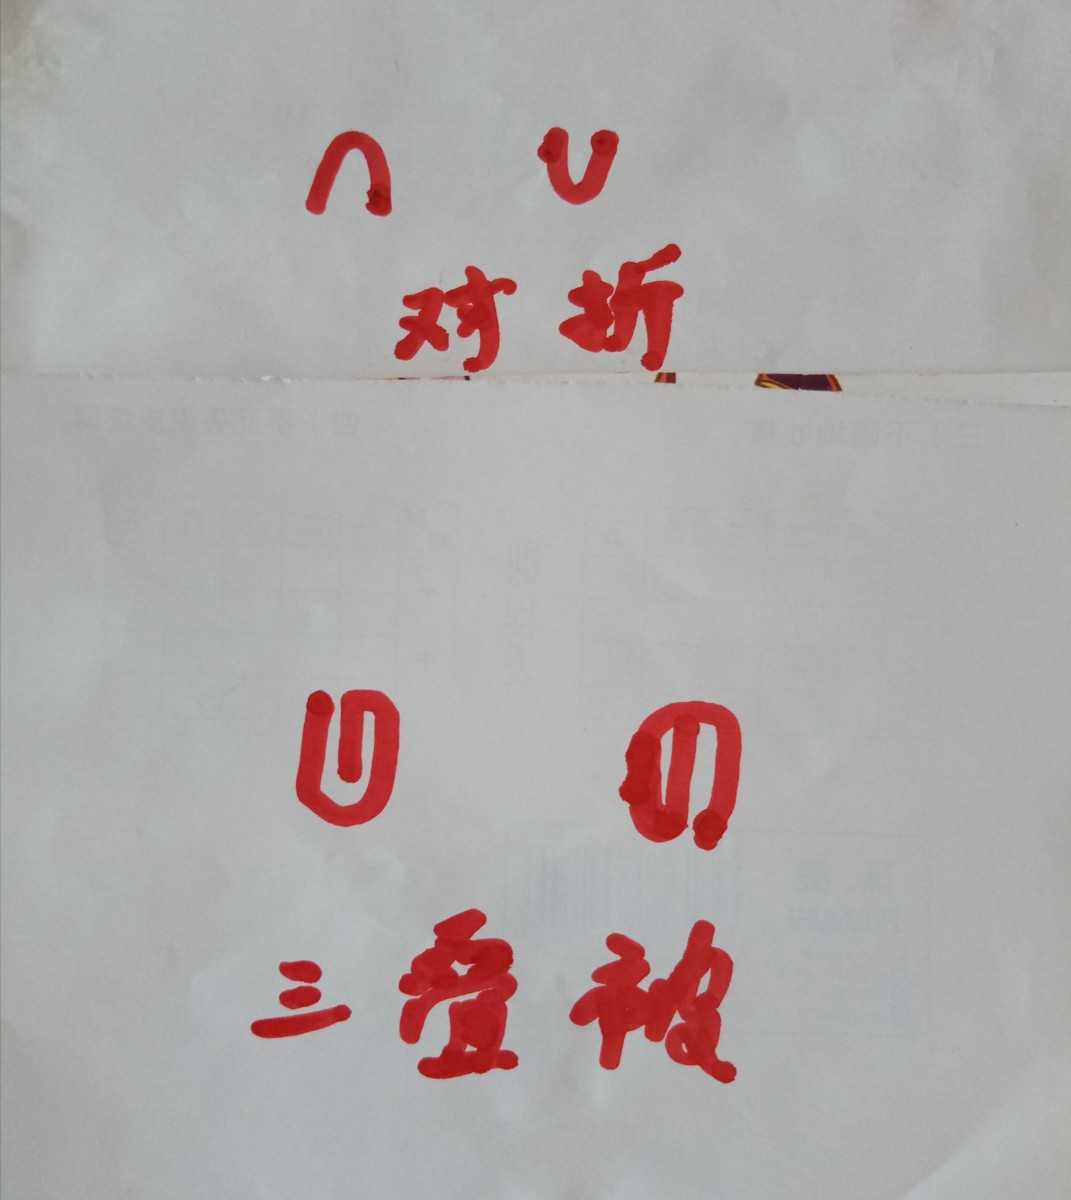 对折
三叠被